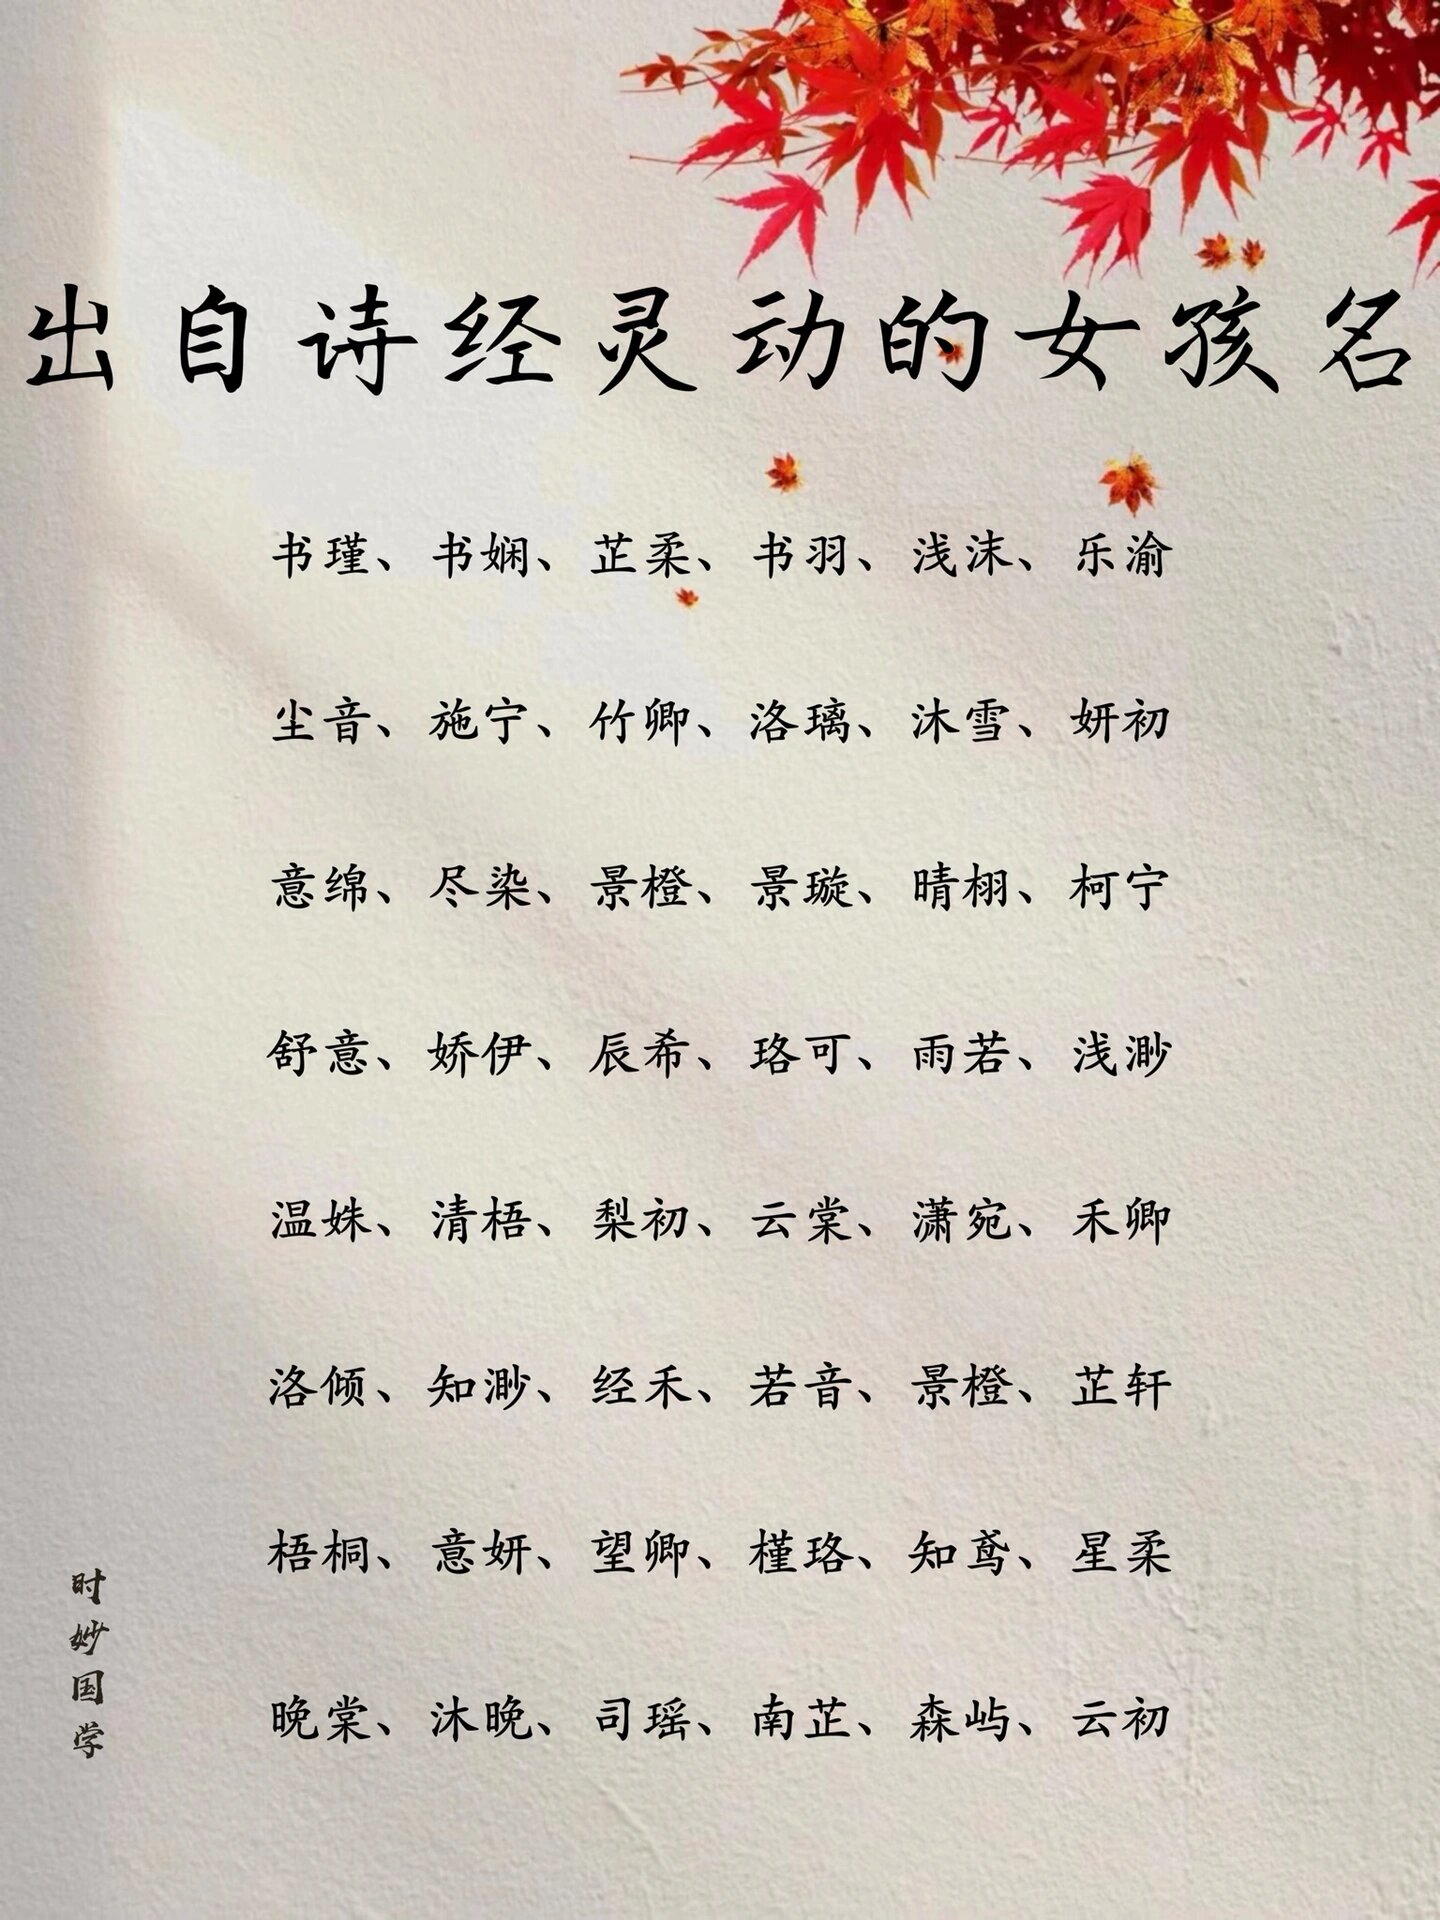 出自诗经灵动的女孩名
书瑾、书娴、芷柔、书羽、浅沫、乐渝
尘音、施宁、竹卿、洛璃、沐雪、妍初
意绵、尽染、景橙、景璇、晴栩、柯宁
舒意、娇伊、辰希、珞可、雨若、浅渺
温姝、清梧、梨初、云棠、潇宛、禾卿
洛倾、知渺、经禾、若音、景橙、芷轩
梧桐、意妍、望卿、槿珞、知鸢、星柔
晚棠、沐晚、司瑶、南芷、森屿、云初
时妙国学